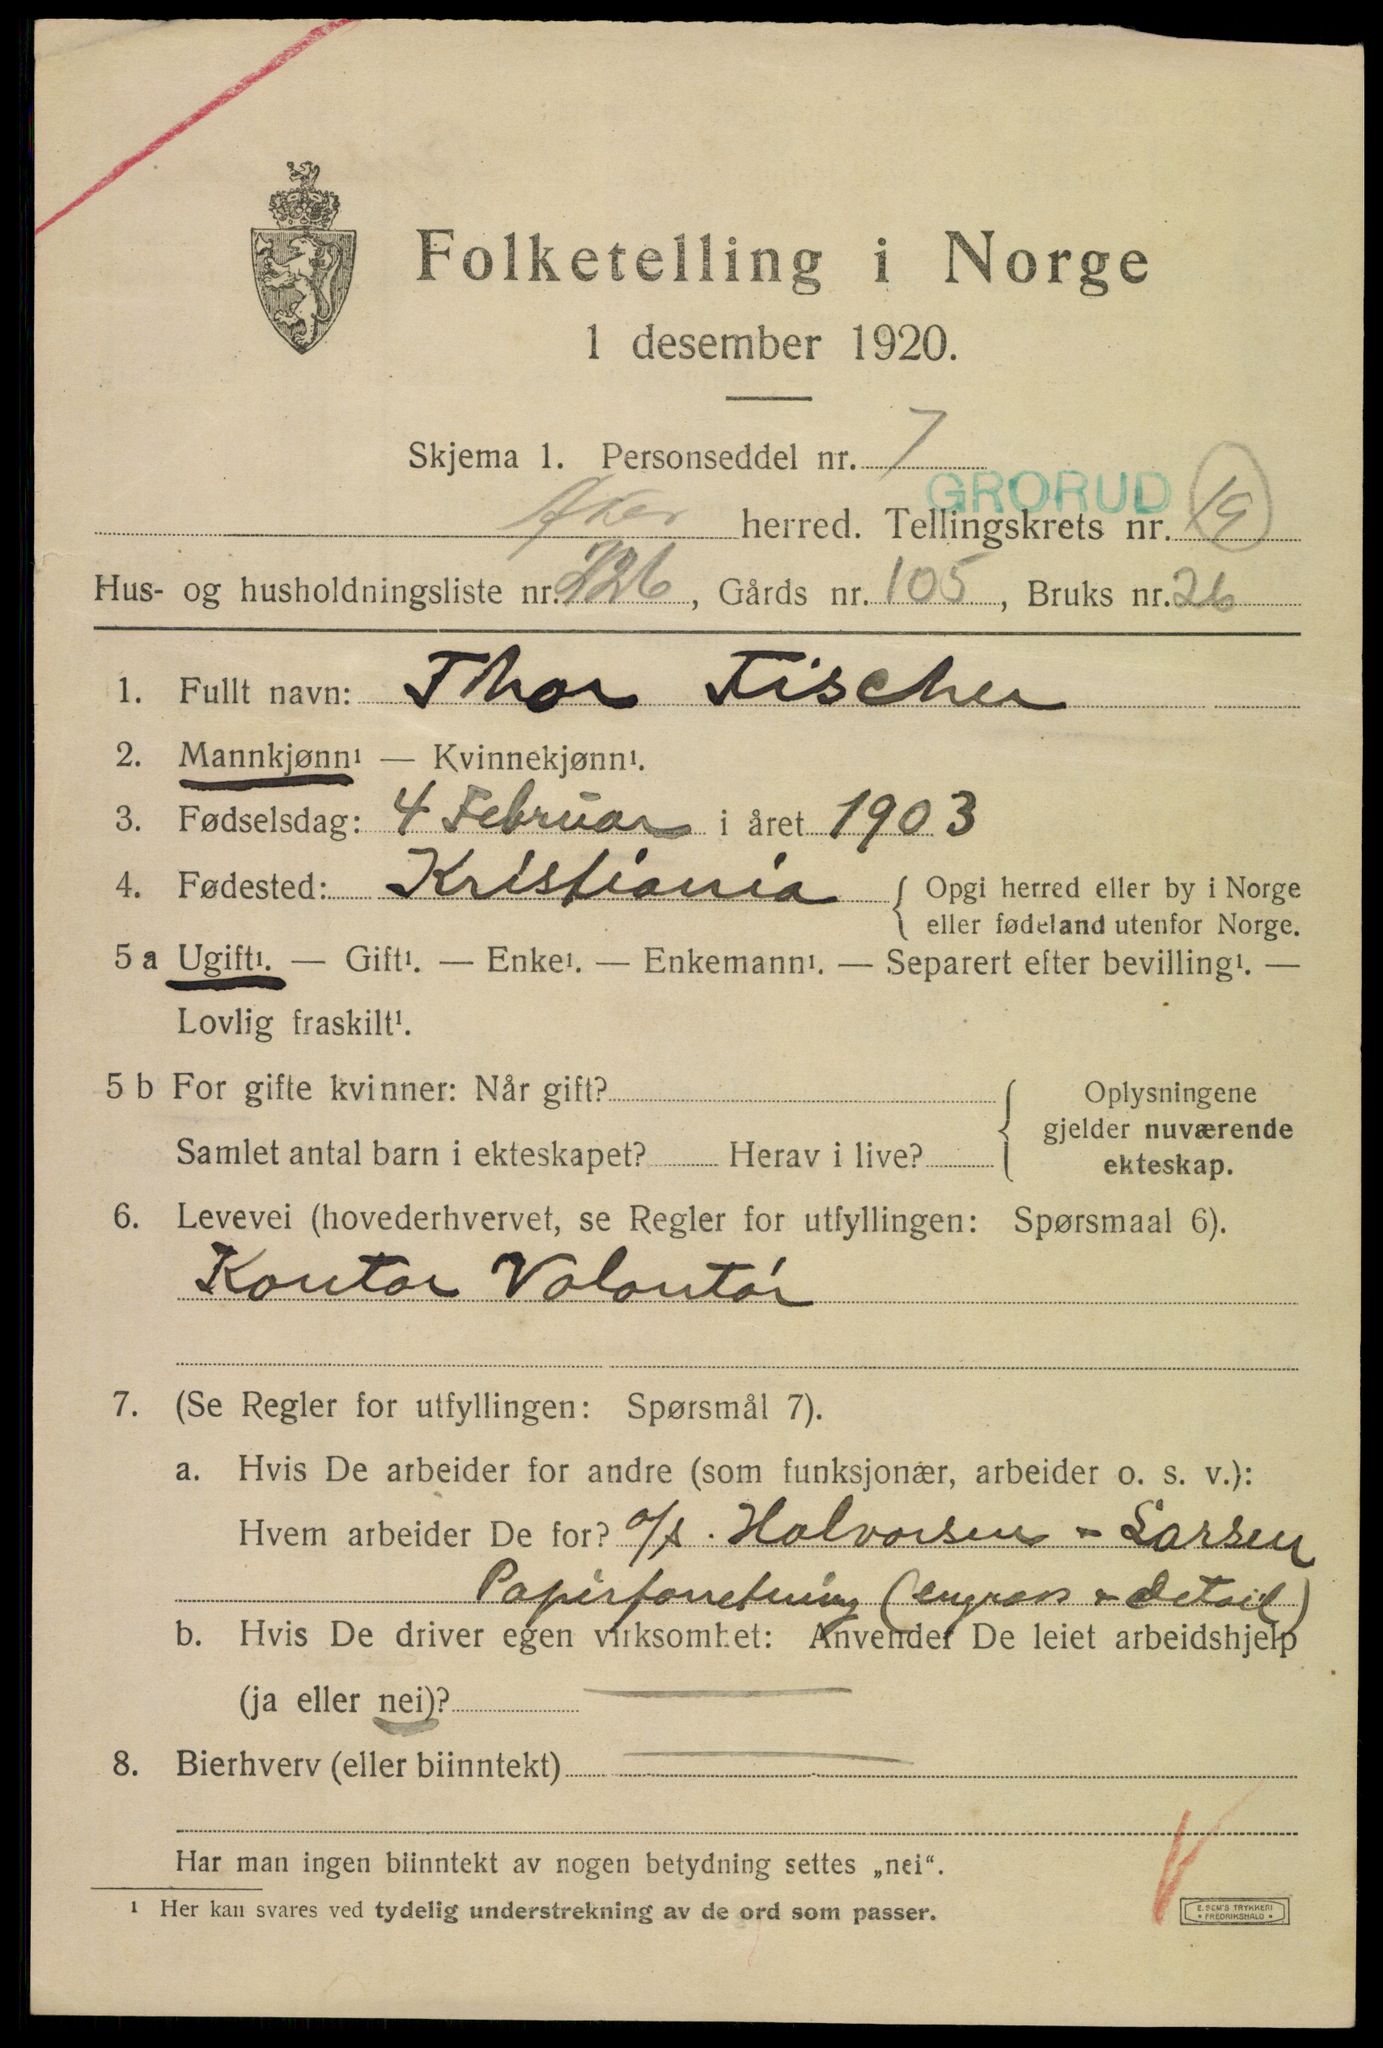 Folketelling i Norge
1 desember 1920.
Skjema 1. Personseddel nr. 7
GRORUD
Aker herred. Tellingskrets nr. 19
Hus- og husholdningsliste nr. 226, Gårds nr. 105, Bruks nr. 26
1. Fullt navn: Thor Fischer
2. Mannkjønn¹ — Kvinnekjønn¹.
3. Fødselsdag: 4 Februar i året 1903
4. Fødested: Kristiania { Opgi herred eller by i Norge
eller fødeland utenfor Norge.
5 a Ugift¹. — Gift¹. — Enke¹. — Enkemann¹. — Separert efter bevilling¹. —
Lovlig fraskilt¹.
5 b For gifte kvinner: Når gift?
Samlet antal barn i ekteskapet? Herav i live?
Oplysningene
gjelder nuværende
ekteskap.
6. Levevei (hovederhvervet, se Regler for utfyllingen: Spørsmaal 6).
Kontor Volontør
7. (Se Regler for utfyllingen: Spørsmål 7).
a. Hvis De arbeider for andre (som funksjonær, arbeider o. s. v.):
Hvem arbeider De for? a/s. Halvorsen & Larsen
Papirforretning (engros & detail)
b. Hvis De driver egen virksomhet: Anvender De leiet arbeidshjelp
(ja eller nei)?
8. Bierhverv (eller biinntekt)
Har man ingen biinntekt av nogen betydning settes „nei“.
¹ Her kan svares ved tydelig understrekning av de ord som passer.
E. SEM'S TRYKKERI
• FREDRIKSHALD •